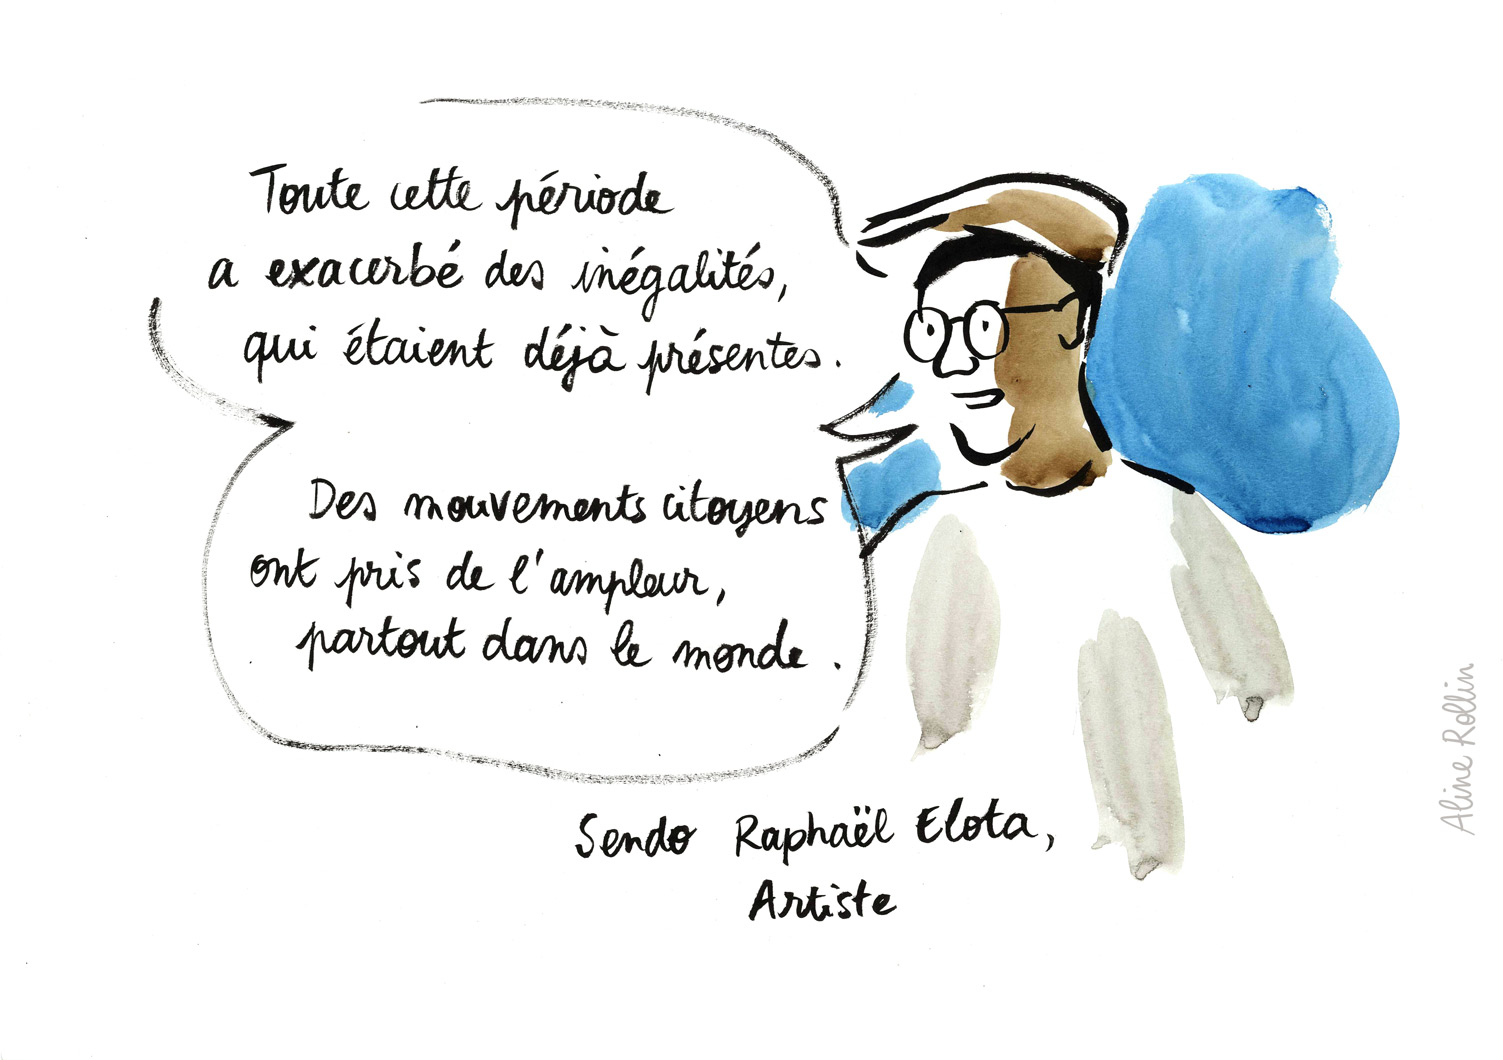 Toute cette période
a exacerbé des inégalités,
qui étaient déjà présentes.
Des mouvements citoyens
ont pris de l'ampleur,
partout dans le monde.
Sendo Raphaël Elota,
Artiste
Aline Rollin